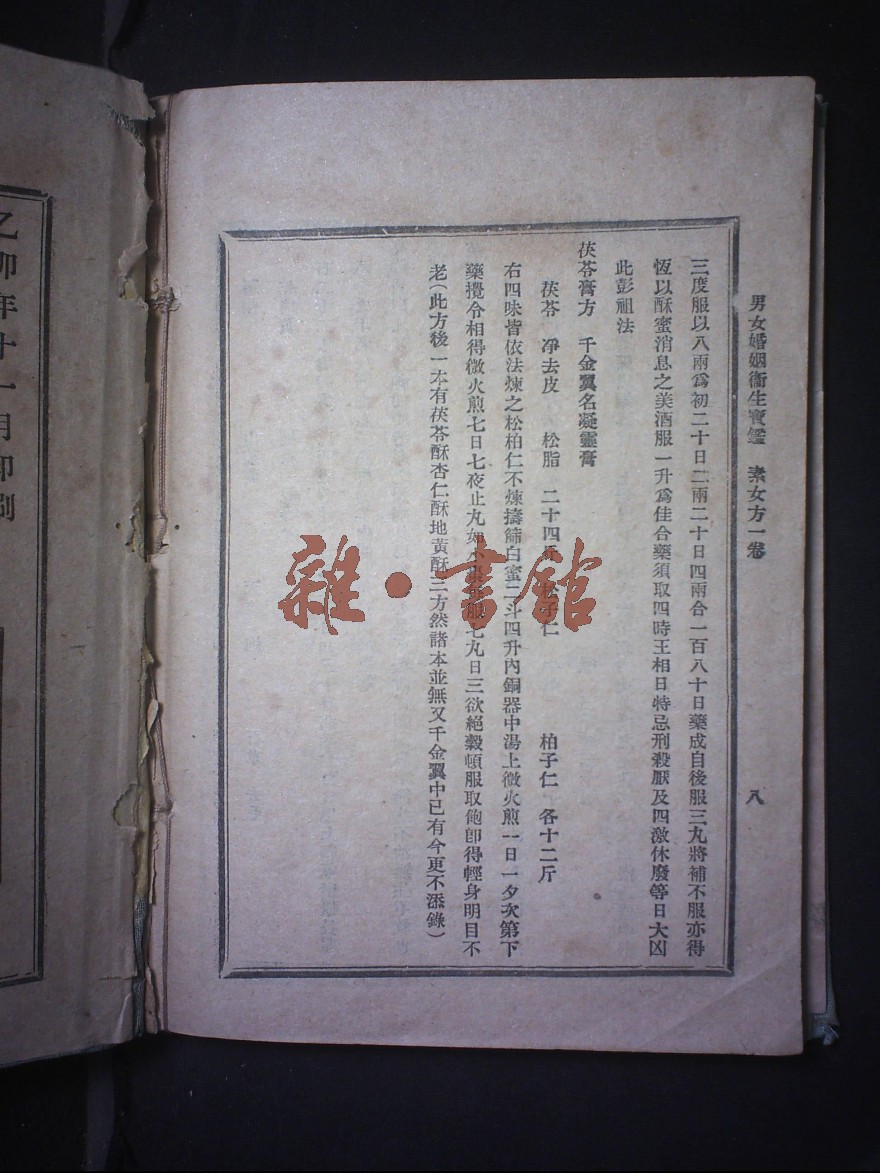 男女婚姻衞生寶鑑　素女方一卷
八
三度服以八兩爲初二十日二兩二十日四兩合一百八十日藥成自後服三丸將補不服亦得
恆以酥蜜消息之美酒服一升爲佳合藥須取四時王相日特忌刑殺厭及四激休廢等日大凶
此彭祖法
茯苓膏方　千金翼名凝靈膏
茯苓　凈去皮　松脂　二十四斤　松子仁　柏子仁　各十二斤
右四味皆依法煉之松柏仁不煉擣篩白蜜二斗四升內銅器中湯上微火煎一日一夕次第下
藥攪令相得微火煎七日七夜止丸如小棗每服七丸日三欲絕穀頓服取飽卽得輕身明目不
老（此方後一本有茯苓酥杏仁酥地黃酥三方然諸本並無又千金翼中已有今更不添錄）
乙卯年十一月印刷
雜·書館